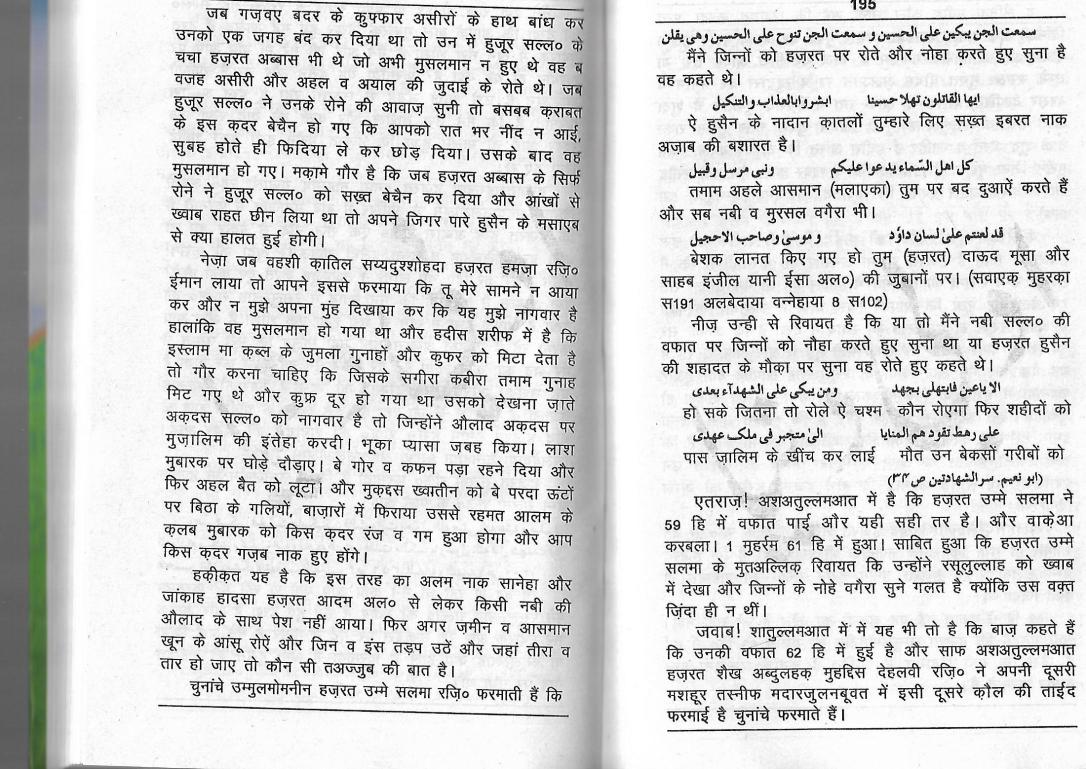 जब गज़वए बदर के कुफ्फार असीरों के हाथ बांध कर
उनको एक जगह बंद कर दिया था तो उन में हुजूर सल्ल० के
चचा हज़रत अब्बास भी थे जो अभी मुसलमान न हुए थे वह ब
वजह असीरी और अहल व अयाल की जुदाई के रोते थे। जब
हुजूर सल्ल० ने उनके रोने की आवाज़ सुनी तो बसबब क़राबत
के इस क़दर बेचैन हो गए कि आपको रात भर नींद न आई,
सुबह होते ही फिदिया ले कर छोड़ दिया। उसके बाद वह
मुसलमान हो गए। मक़ामे गौर है कि जब हज़रत अब्बास के सिर्फ
रोने ने हुजूर सल्ल० को सख़्त बेचैन कर दिया और आंखों से
ख्वाब राहत छीन लिया था तो अपने जिगर पारे हुसैन के मसाएब
से क्या हालत हुई होगी।
नेज़ा जब वहशी क़ातिल सय्यदुश्शोहदा हज़रत हमज़ा रज़ि०
ईमान लाया तो आपने इससे फरमाया कि तू मेरे सामने न आया
कर और न मुझे अपना मुंह दिखाया कर कि यह मुझे नागवार है
हालांकि वह मुसलमान हो गया था और हदीस शरीफ में है कि
इस्लाम मा क़ब्ल के जुमला गुनाहों और कुफर को मिटा देता है
तो गौर करना चाहिए कि जिसके सगीरा कबीरा तमाम गुनाह
मिट गए थे और कुफ्र दूर हो गया था उसको देखना ज़ाते
अक़दस सल्ल० को नागवार है तो जिन्होंने औलाद अक़दस पर
मुज़ालिम की इंतेहा करदी। भूका प्यासा ज़बह किया। लाश
मुबारक पर घोड़े दौड़ाए। बे गोर व कफन पड़ा रहने दिया और
फिर अहल बैत को लूटा। और मुक़द्दस ख्वातीन को बे परदा ऊंटों
पर बिठा के गलियों, बाज़ारों में फिराया उससे रहमत आलम के
क़लब मुबारक को किस क़दर रंज व गम हुआ होगा और आप
किस क़दर गज़ब नाक हुए होंगे।
हक़ीक़त यह है कि इस तरह का अलम नाक सानेहा और
जांकाह हादसा हज़रत आदम अल० से लेकर किसी नबी की
औलाद के साथ पेश नहीं आया। फिर अगर ज़मीन व आसमान
खून के आंसू रोऐं और जिन व इंस तड़प उठें और जहां तीरा व
तार हो जाए तो कौन सी तअज्जुब की बात है।
चुनांचे उम्मुलमोमनीन हज़रत उम्मे सलमा रज़ि० फरमाती हैं कि
195
سمعت الجن يبكين على الحسين و سمعت الجن تنوح على الحسين وهى يقلن
मैंने जिन्नों को हज़रत पर रोते और नोहा करते हुए सुना है
वह कहते थे।
ايها القاتلون تهلا حسينا ابشروابالعذاب والتنكيل
ऐ हुसैन के नादान क़ातलों तुम्हारे लिए सख़्त इबरत नाक
अज़ाब की बशारत है।
كل اهل السّماء يدعوا عليكم ونبى مرسل وقبيل
तमाम अहले आसमान (मलाएका) तुम पर बद दुआऐं करते हैं
और सब नबी व मुरसल वगैरा भी।
قد لعنتم علىٰ لسان داؤد و موسىٰ وصاحب الاحجيل
बेशक लानत किए गए हो तुम (हज़रत) दाऊद मूसा और
साहब इंजील यानी ईसा अल०) की ज़ुबानों पर। (सवाएक़ मुहरक़ा
स191 अलबेदाया वन्नेहाया 8 स102)
नीज़ उन्ही से रिवायत है कि या तो मैंने नबी सल्ल० की
वफात पर जिन्नों को नौहा करते हुए सुना था या हज़रत हुसैन
की शहादत के मौक़ा पर सुना वह रोते हुए कहते थे।
الا ياعين فابتهلى بجهد ومن يبكى على الشهدآء بعدى
हो सके जितना तो रोले ऐ चश्म कौन रोएगा फिर शहीदों को
على رهط تقود هم المنايا الىٰ متجبر فى ملك عهدى
पास ज़ालिम के खींच कर लाई मौत उन बेकसों गरीबों को
(ابو نعيم. سر الشهادتين ص ۳۴)
एतराज़! अशअतुल्लमआत में है कि हज़रत उम्मे सलमा ने
59 हि में वफात पाई और यही सही तर है। और वाक़ेआ
करबला। 1 मुहर्रम 61 हि में हुआ। साबित हुआ कि हज़रत उम्मे
सलमा के मुतअल्लिक़ रिवायत कि उन्होंने रसूलुल्लाह को ख्वाब
में देखा और जिन्नों के नोहे वगैरा सुने गलत है क्योंकि उस वक़्त
ज़िंदा ही न थीं।
जवाब! शातुल्लमआत में में यह भी तो है कि बाज़ कहते हैं
कि उनकी वफात 62 हि में हुई है और साफ अशअतुल्लमआत
हज़रत शैख अब्दुलहक़ मुहद्दिस देहलवी रज़ि० ने अपनी दूसरी
मशहूर तस्नीफ मदारजुलनबूवत में इसी दूसरे क़ौल की ताईद
फरमाई है चुनांचे फरमाते हैं।